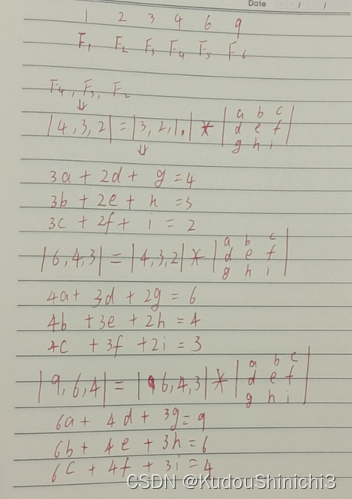 Date
1 2 3 4 6 9
F1 F2 F3 F4 F5 F6
F4, F3, F2
⇓
|4,3,2| = |3,2,1,| * |a b c
d e f
g h i|
⇓
3a + 2d + g = 4
3b + 2e + h = 3
3c + 2f + i = 2
|6,4,3| = |4,3,2| * |a b c
d e f
g h i|
4a + 3d + 2g = 6
4b + 3e + 2h = 4
4c + 3f + 2i = 3
|9,6,4| = |6,4,3| * |a b c
d e f
g h i|
6a + 4d + 3g = 9
6b + 4e + 3h = 6
6c + 4f + 3i = 4
CSDN @KudouShinichi3